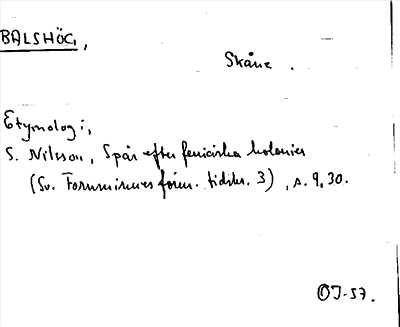 BALSHÖG,
Skåne.
Etymologi,
S. Nilsson, Spår efter feniciska kolonier
(Sv. Fornminnesfören. tidskr. 3), s. 9, 30.
OJ-57.